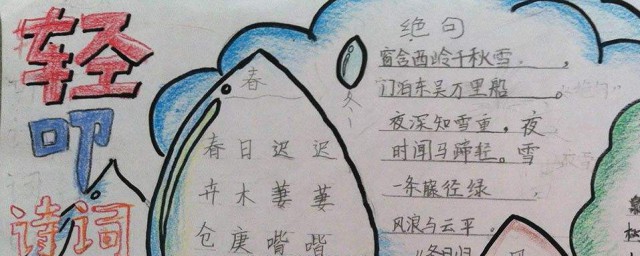 轻
叩
诗词
春
春日迟迟
卉木萋萋
仓庚喈喈
绝句
窗含西岭千秋雪，
门泊东吴万里船。
夜深知雪重，夜
时闻马蹄轻。雪
一条藤径绿
风浪与云平。